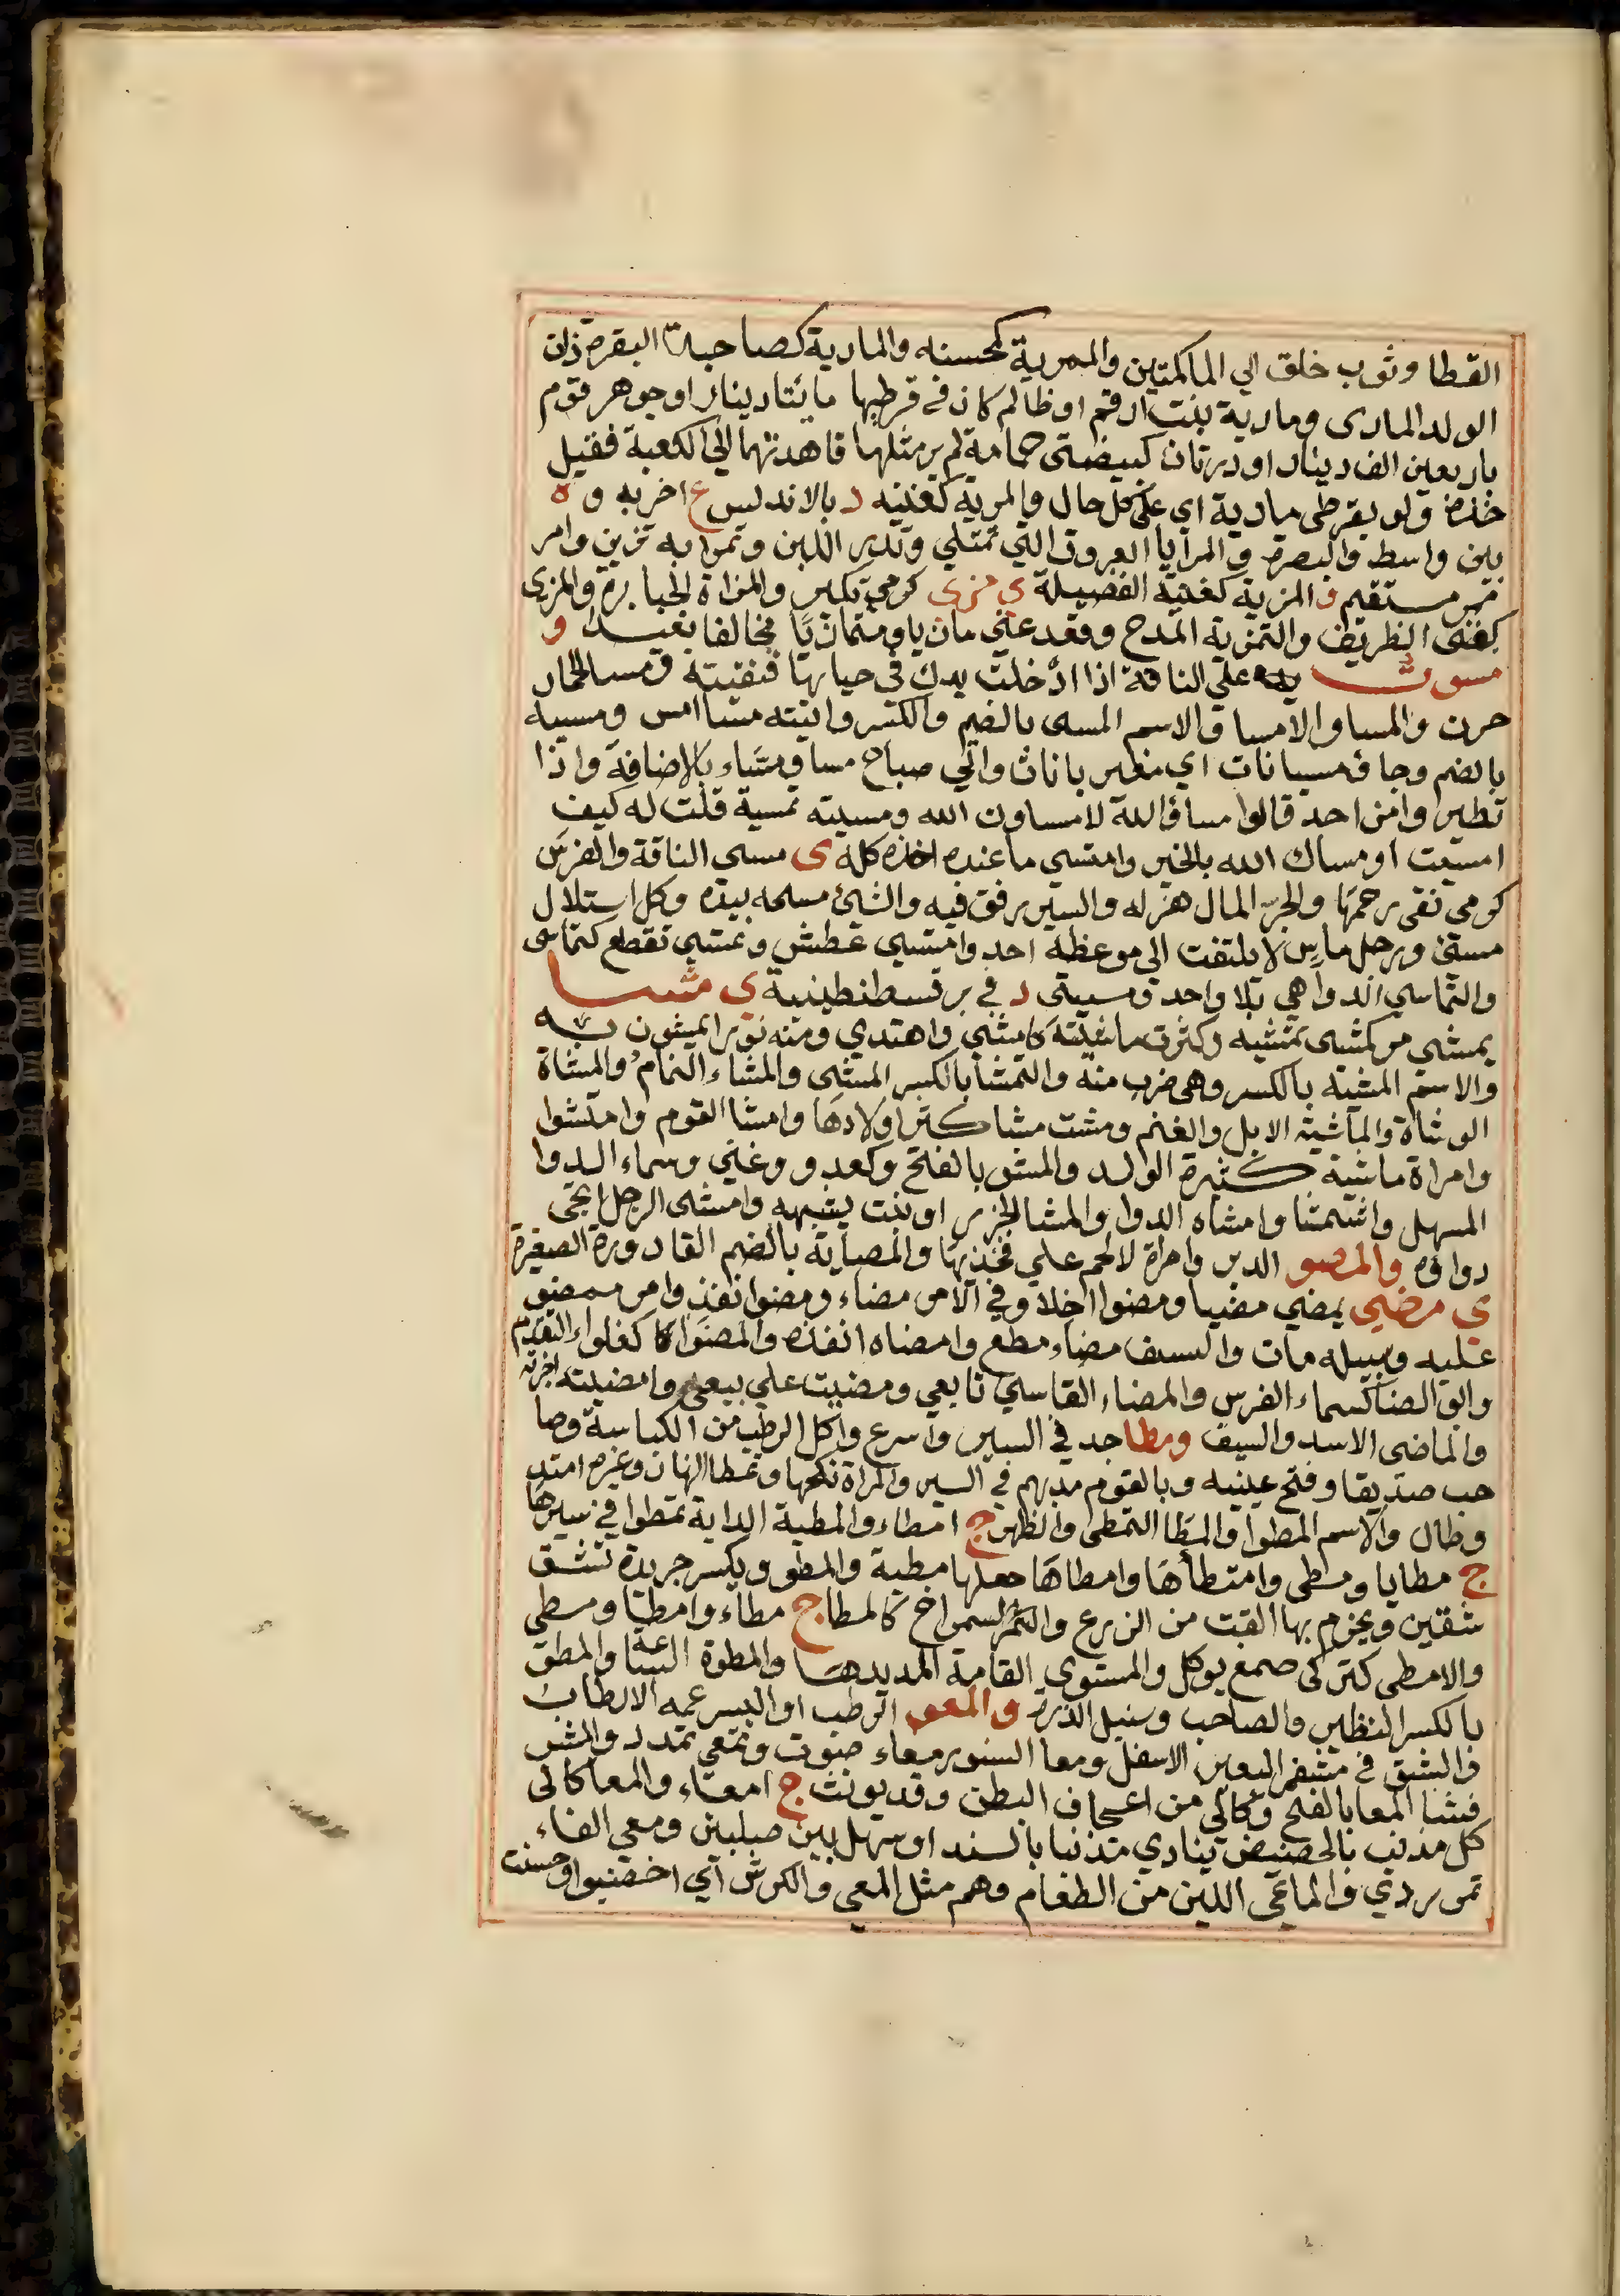 القطا وثوب خلق الي الماكمتين والممرية كمحسنه والمارية كصاحبة البقرة ذات
الولد الماري ومارية بنت ارقم او ظالم كان في قرطيها مائتا دينار او جوهر قوم
باربعين الف دينار او درتان كبيضتي حمامة لم ير مثلها فاهدتهما الي الكعبة فقيل
خذه ولو بقرطي مارية اي علي كل حال والمرية كغنيه د بالاندلس ع اخر به و ه
بين واسط والبصرة والمرايا العروق التي تمتلي وتدر اللبن وتمرا به تزين وامر
ممر مستقيم و المزية كغنية الفضيلة ي مزي كرمي تكبر والمزاة الجبابرة والمزي
كغني الظريف والتمزية المدح وقعد عني مازيا ومتمازيا مخالفا بعيدا و
مسوت علي الناقة اذا ادخلت يدك في حيايها فنقيته ومسا الحمار
حرن والمسا والامسا والاسم المسي بالضم والكسر واتيته مسا امس ومسيه
بالضم وجا مسيانات اي مغيربانات واتي صباح مسا ومساء بالاضافة واذا
تطيروا من احد قالوا مسا الله لا مساوك الله ومسيته تمسية قلت له كيف
امسيت او مساك الله بالخير وامتسي ما عنده اخذه كله ي مسي الناقة والفرس
كرمي نقي رحمها والحر المال هزله والسير رفق فيه والشئ مسحه بيده وكل استلال
مسي ورجل ماس لا يلتفت الي موعظة احد وامتسي عطش وتمسي تقطع كتماسي
والتماسي الدواهي بلا واحد ومسيني د في بر قسطنطينية ي مشـا
يمشي مر كمشي تمشيه وكثرت ماشيته كامشي واهتدي ومنه نورا تمشون به
والاسم المشية بالكسر وهي ضرب منه والتمشا بالكسر المشي والمشاء النمام والمشاة
الوشاة والماشية الابل والغنم ومشت مشا كثر اولادها وامشا القوم وامتشوا
وامراة ماشية كثيرة الولد والمشو بالفتح وكعدو وغني وسماء الدوا
المسهل واستمشا وامشاه الدوا والمشا الجزر او نبت يشبهه وامشي الرجل انجي
دواوه والمصو الدبر وامراة لا لحم علي فخذيها والمصاية بالضم القارورة الصغيرة
ي مضي يمضي مضيا ومضوا خلا وفي الامر مضاء ومضوا نفذ وامر ممضو
عليه وسبيله مات والسيف مضاء قطع وامضاه انفذه والمضوا كغلواء التقدم
وابو المضا كسماء الفرس والمضاء القاسي تابعي ومضيت علي بيعي وامضيته اجزته
والماضي الاسد والسيف ومطا جد في السير واسرع واكل الرطب من الكباسة وصا
حب صديقا وفتح عينيه وبالقوم مد بهم في السير والمراة نكحها وتمطا النهار وغيره امتد
وطال والاسم المطوا والمطا التمطي والظهر ج امطاء والمطية الدابة تمطوا في سيرها
ج مطايا ومطي وامتطاها وامطاها جعلها مطية والمطو ويكسر جريدة تشق
شقتين ويحزم بها القت من الزرع والشمراخ كالمطا ج مطاء وامطا ومطي
والامطي كتركي صمغ يوكل والمستوي القامة المديدها والمطوة الساعة والمطو
بالكسر النظير والصاحب وسنبل الذرة والمعو الرطب او البسر عمه الارطاب
والشق في مشفر البعير الاسفل ومعا السنور معاء صوت وتمعي تمدد والشر
فشا المعا بالفتح وكالي من اعفاج البطن وقد يونث ج امعاء والمعا كالي
كل مذنب بالحضيض ينادي مذنبا بالسند او سهل بين صلبين ومعي الفاء
تمر ردي والماعي اللين من الطعام وهم مثل المعي والكرش اي اخصبوا وحسنت